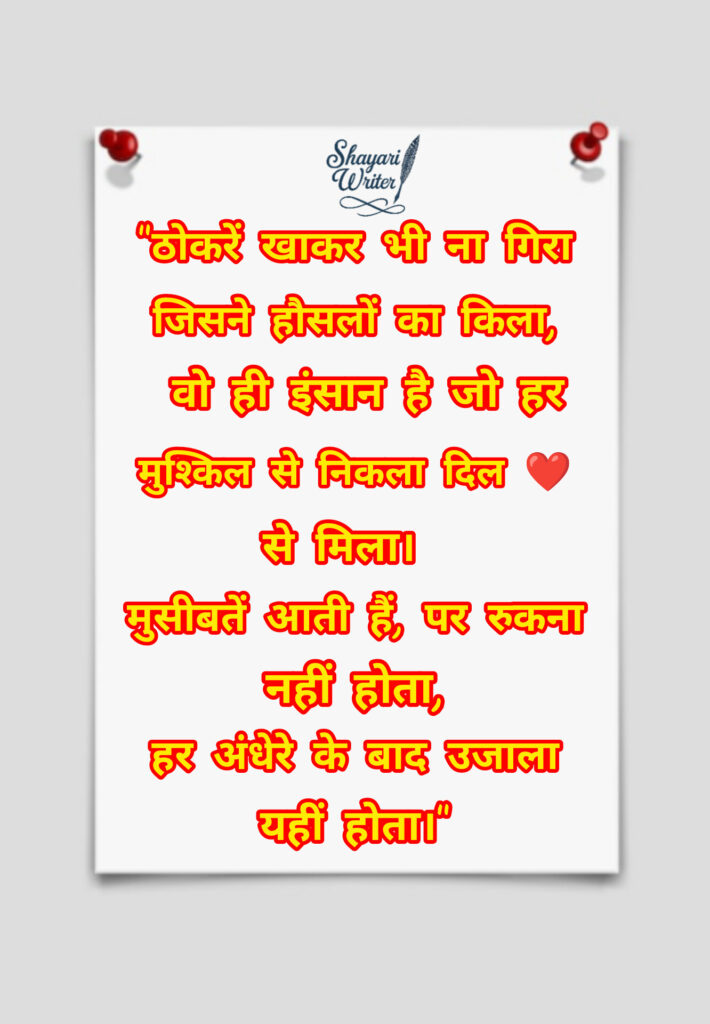 Shayari
Writer
"ठोकरें खाकर भी ना गिरा
जिसने हौसलों का किला,
वो ही इंसान है जो हर
मुश्किल से निकला दिल ❤️
से मिला।
मुसीबतें आती हैं, पर रुकना
नहीं होता,
हर अंधेरे के बाद उजाला
यहीं होता।"